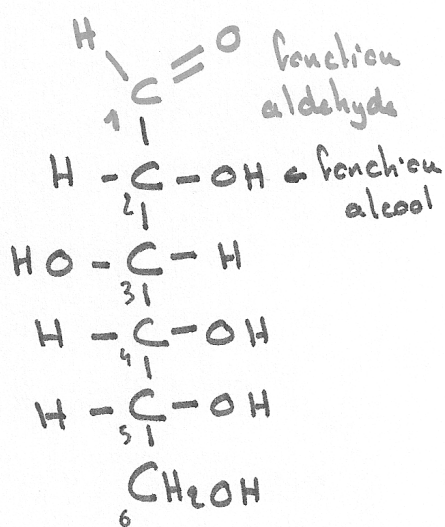 H O fonction
C aldehyde
1
H - C - OH ← fonction
2 alcool
HO - C - H
3
H - C - OH
4
H - C - OH
5
CH2OH
6